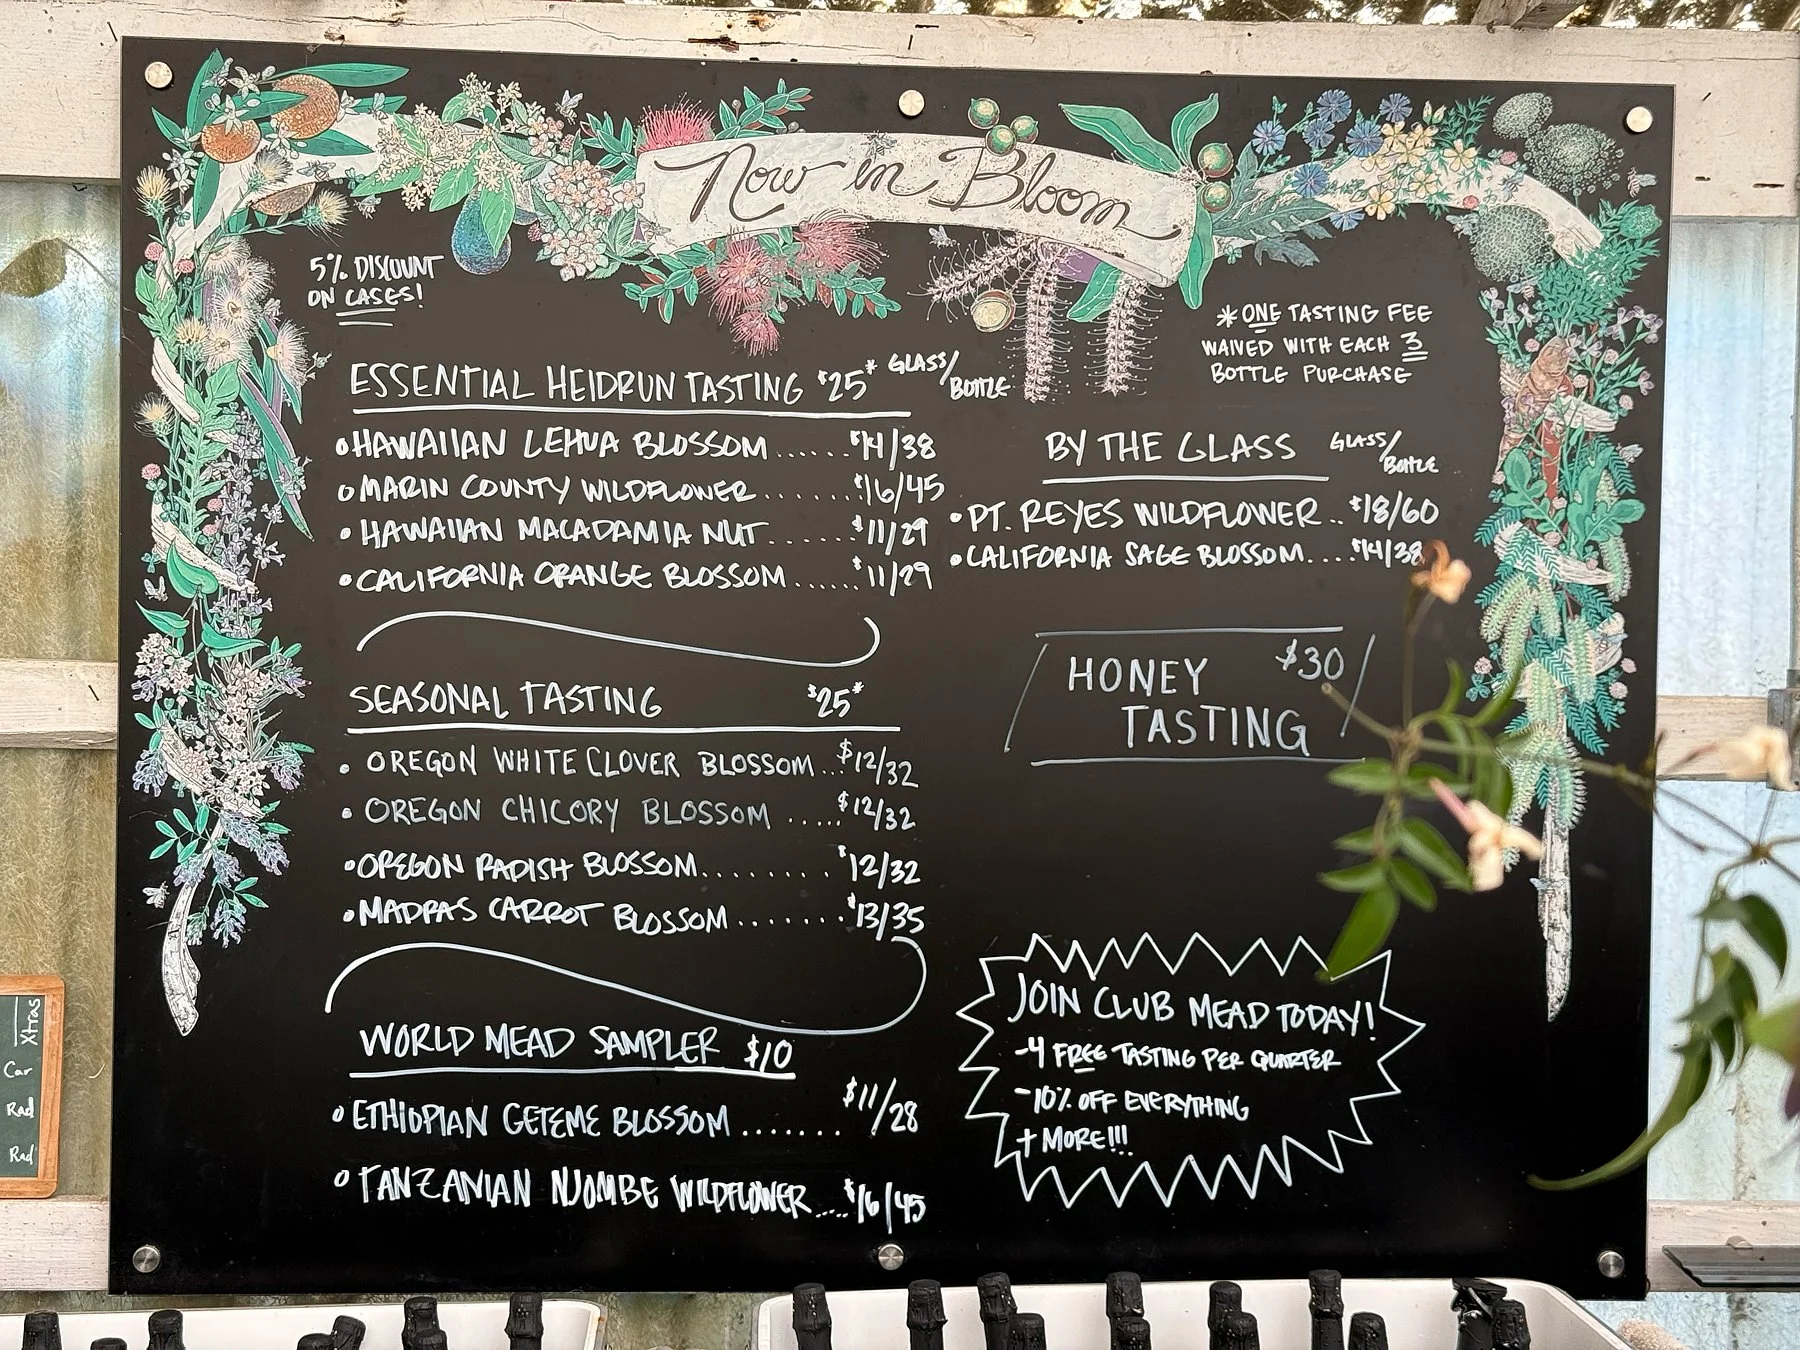 Now in Bloom
5% DISCOUNT
ON CASES!
*ONE TASTING FEE
WAIVED WITH EACH 3
BOTTLE PURCHASE
ESSENTIAL HEIDRUN TASTING $25* GLASS/BOTTLE
HAWAIIAN LEHUA BLOSSOM......$14/38
MARIN COUNTY WILDFLOWER.......$16/45
HAWAIIAN MACADAMIA NUT.......$11/29
CALIFORNIA ORANGE BLOSSOM......$11/29
BY THE GLASS GLASS/BOTTLE
PT. REYES WILDFLOWER..$18/60
CALIFORNIA SAGE BLOSSOM....$14/38
HONEY $30
TASTING
SEASONAL TASTING $25*
OREGON WHITE CLOVER BLOSSOM...$12/32
OREGON CHICORY BLOSSOM .....$12/32
OREGON RADISH BLOSSOM........$12/32
MADRAS CARROT BLOSSOM.......$13/35
WORLD MEAD SAMPLER $10
ETHIOPIAN GETEME BLOSSOM.......$11/28
TANZANIAN NJOMBE WILDFLOWER.....$16/45
JOIN CLUB MEAD TODAY!
-4 FREE TASTING PER QUARTER
-10% OFF EVERYTHING
+ MORE!!!
Xtras
Car
Rad
Rad